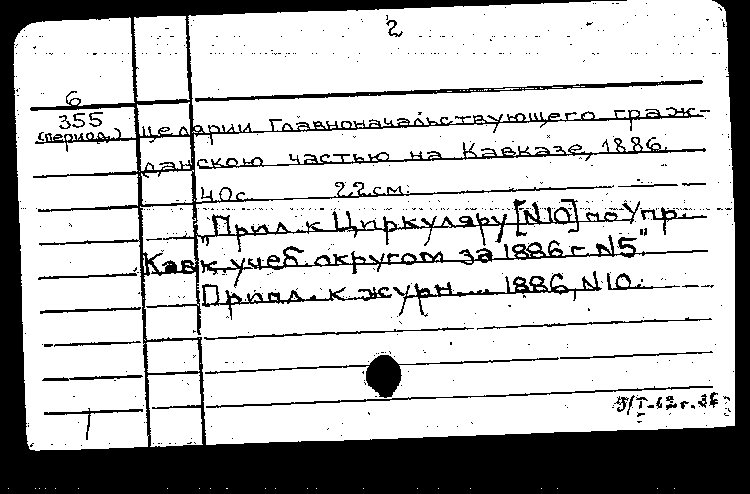 2
6
355
(период.)
целярии Главноначальствующего граж-
данскою частью на Кавказе, 1886.
40с. 22см.
"Прил. к Циркуляру [N10] по Упр.
Кавк. учеб. округом за 1886 г. N5".
Прил. к журн.... 1886, N10.